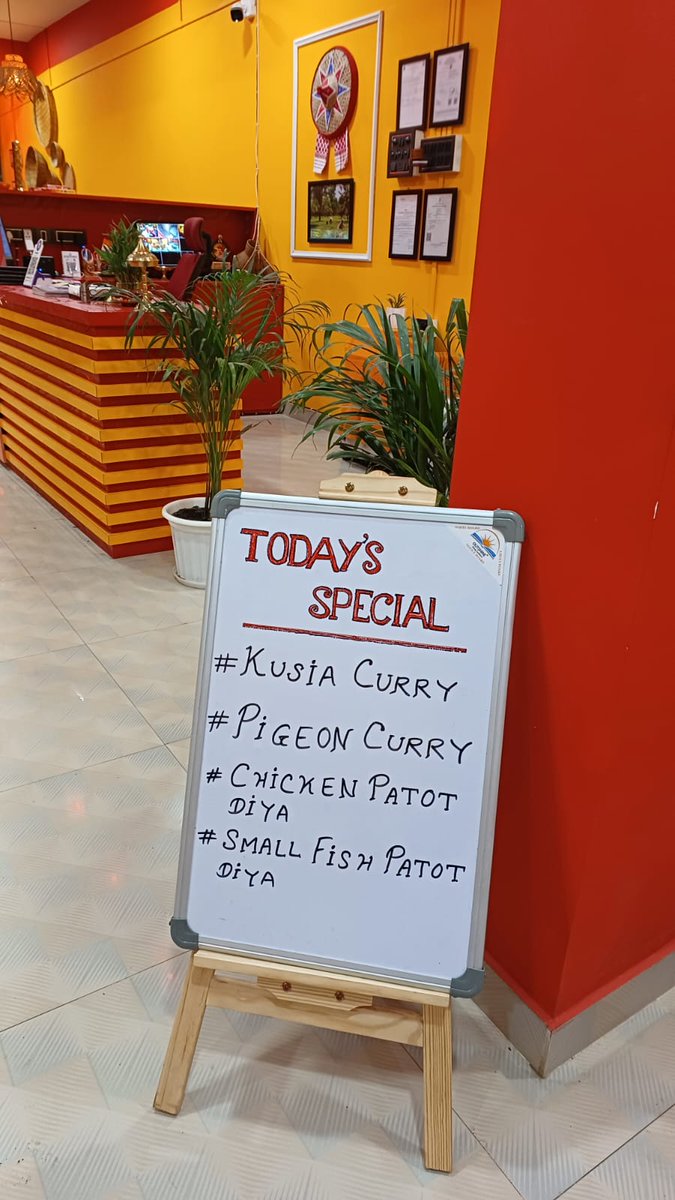 TODAY'S
SPECIAL
#KUSiA CURRY
#PiGEON CURRY
# CHiCKEN PATOT
DiYA
# SMALL FiSH PATOT
DiYA